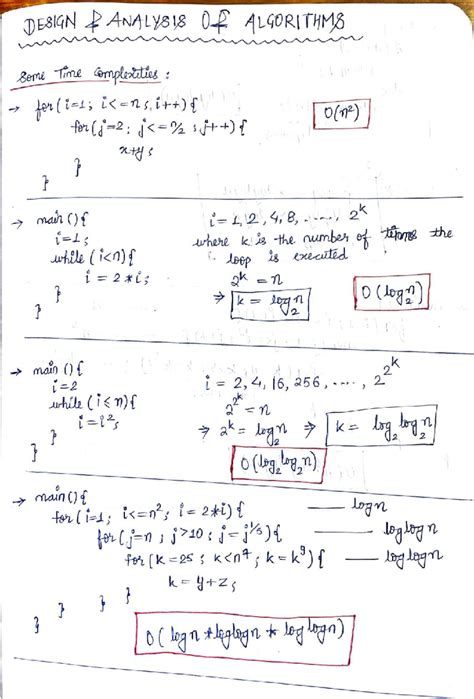 DESIGN & ANALYSIS OF ALGORITHMS
Some Time Complexities :
→ for (i=1; i<=n; i++) {
O(n²)
for (j=2; j<=n/2; j++) {
x+y;
}
}
→ main () {
i = 1, 2, 4, 8, ....., 2^k
i=1;
where k is the number of times the
while (i<n) {
loop is executed
i = 2*i;
2^k = n
}
⇒ k = log₂n
O(log₂n)
}
→ main () {
i=2
i = 2, 4, 16, 256, ...., 2^2^k
while (i≤n) {
2^2^k = n
i = i²;
⇒ 2^k = log₂n ⇒ k = log₂log₂n
}
}
O(log₂log₂n)
→ main() {
for (i=1; i<=n²; i=2*i) { —— logn
for (j=n; j>10; j=j^1/5) { —— loglogn
for (k=25; k<n^7; k=k^9) { —— loglogn
k = y+z;
}
}
}
}
O(logn * loglogn * loglogn)